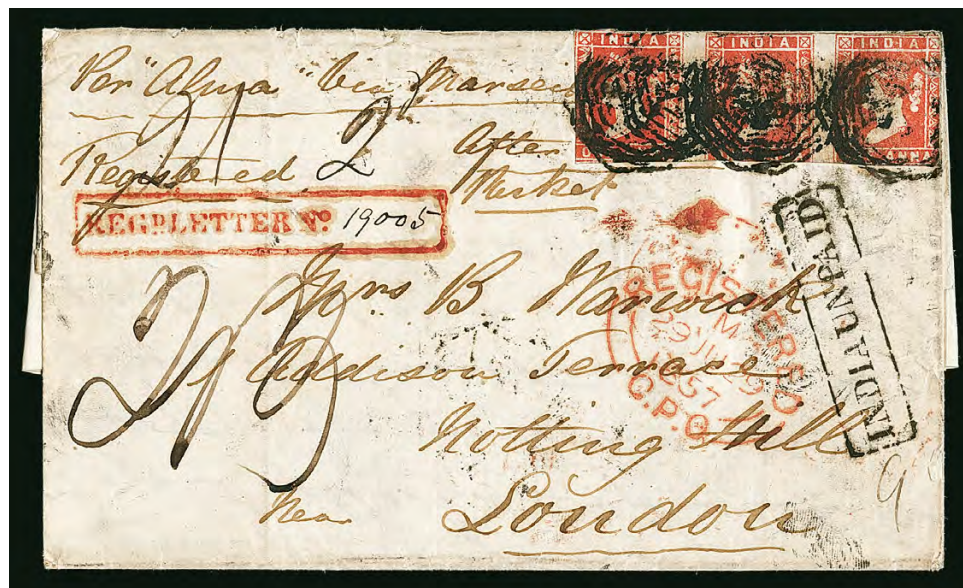 INDIA INDIA INDIA
ANNA
Per "Alma" via Marseil
Registered
After
Market
REGD. LETTER No. 19005
REGISTERED
29 JU 29
1857
G.P.O.
INDIA UNPAID
B Warwick
Addison Terrace
Notting Hill
Near London
9